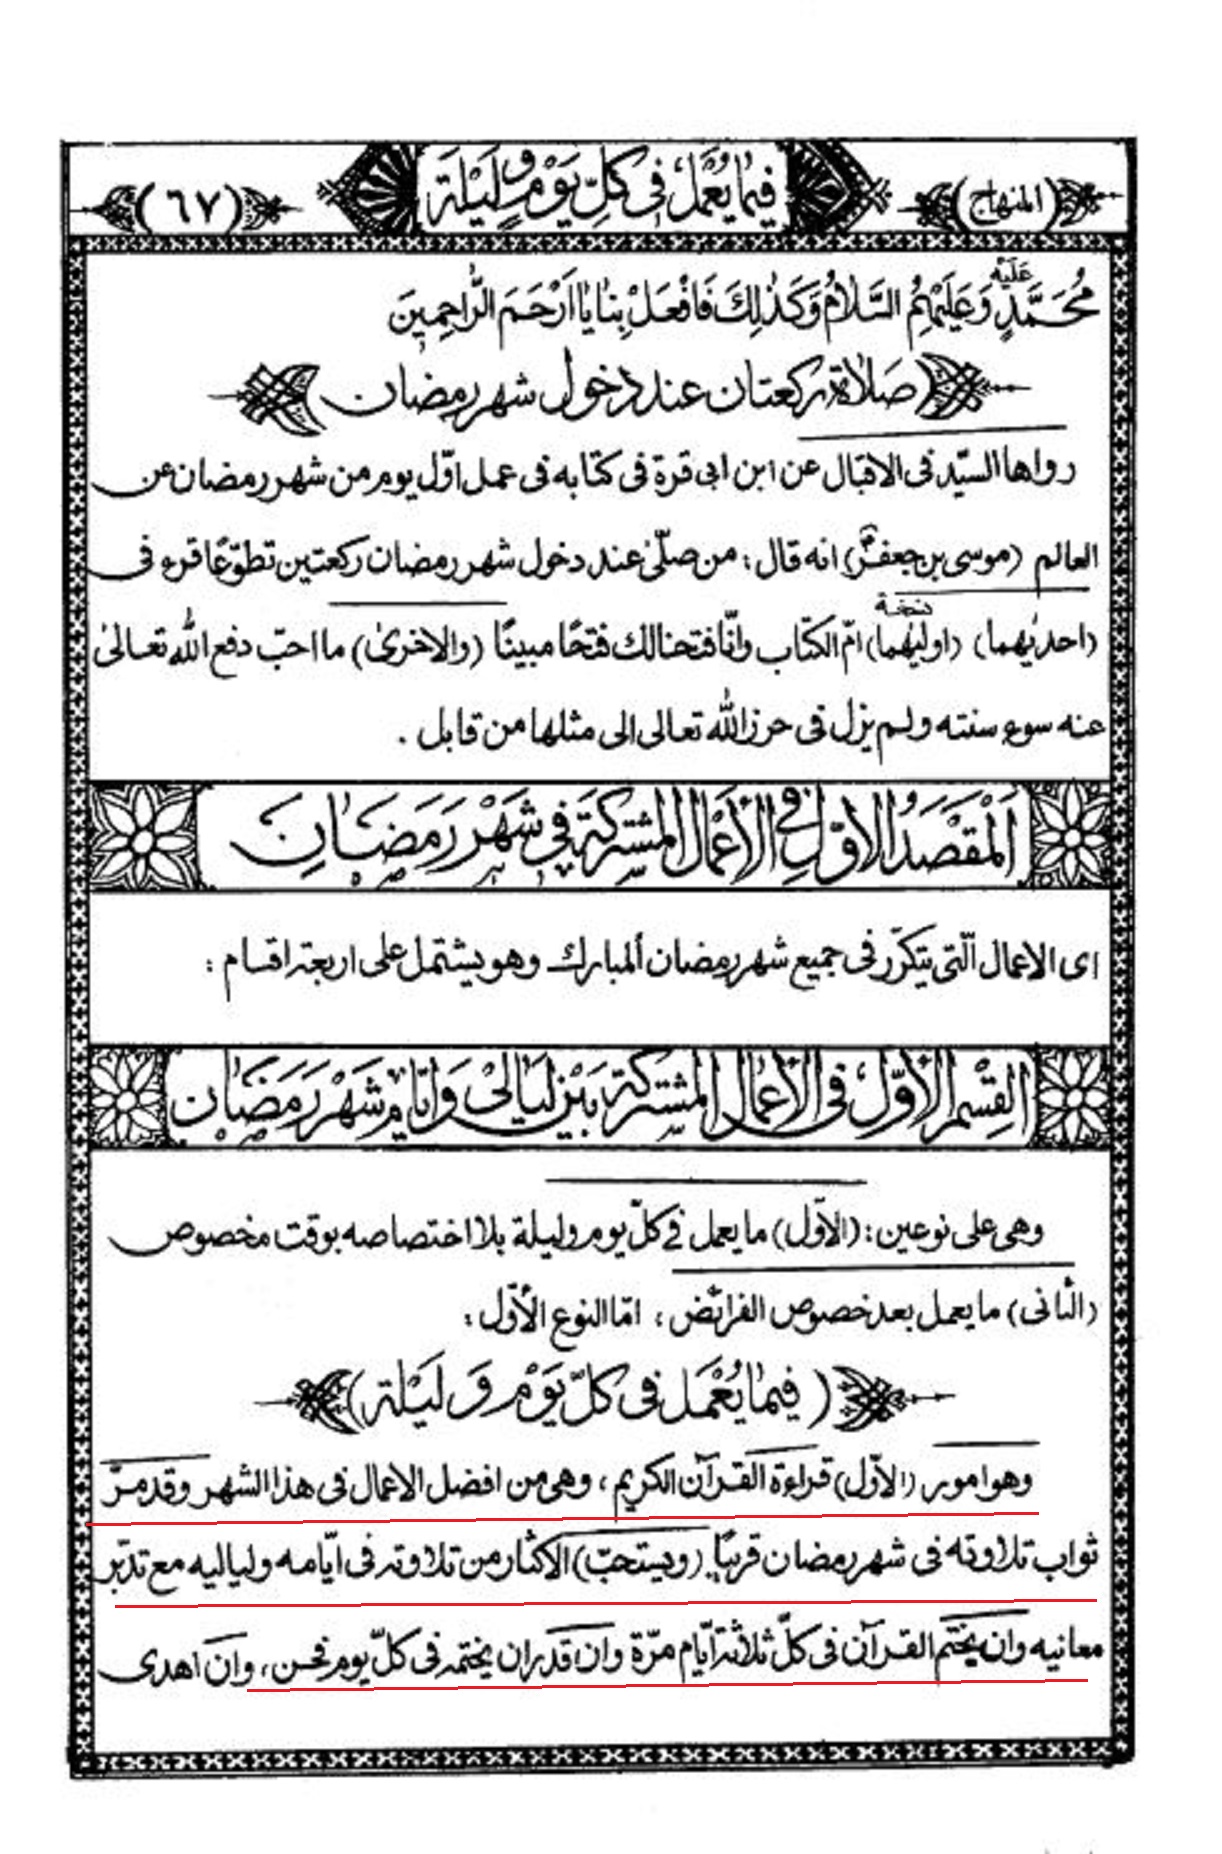 (المنهاج) فيما يعمل في كلّ يوم و ليلة (٦٧)
عليه
مُحَمَّدٍ وَعَلَيْهِمُ السَّلامُ وَكَذٰلِكَ فَافْعَلْ بِنا يا اَرْحَمَ الرّاحِمينَ
(صلاة ركعتان عند دخول شهر رمضان)
رواها السيّد فى الاقبال عن ابن ابى قرة فى كتابه فى عمل اوّل يوم من شهر رمضان عن
العالم (موسى بن جعفرؑ) انه قال: من صلّى عند دخول شهر رمضان ركعتين تطوّعًا قرء فى
نسخة
(احديٰهما) (اوليٰهما) امّ الكتاب وانّا فتحنا لك فتحًا مبينًا (والاخرىٰ) ما احبّ دفع الله تعالىٰ
عنه سوء سنته ولم يزل فى حرز الله تعالى الى مثلها من قابل .
اَلْمَقْصَدُ الاوّل في الأَعْمال المشتركة في شَهْرِ رَمَضانَ
اى الاعمال الّتى يتكرّر فى جميع شهر رمضان ألمبارك وهو يشتمل على اربعة اقسام :
القِسْم الأوّل فى الأعمال المشتركة بَيْنَ لَيالى وَايّام شَهْر رَمَضان
وهى على نوعين : (الأوّل) ما يعمل في كلّ يوم وليلة بلا اختصاصه بوقت مخصوص
(الثانى) ما يعمل بعد خصوص الفرائض ، امّا النوع الأوّل :
(فيما يُعْمَل فى كلّ يَوْم وَ لَيْلة)
وهو امور (الأوّل) قراءة القرآن الكريم ، وهى من افضل الاعمال فى هذا الشهر وقد مرّ
ثواب تلاوته فى شهر رمضان قريبًا (ويستحبّ) الاكثار من تلاوته فى ايّامه ولياليه مع تدبّر
معانيه وان يختم القرآن فى كلّ ثلاثة ايّام مرّة وان قدر ان يختمه فى كلّ يوم فحسن ، وان اهدى